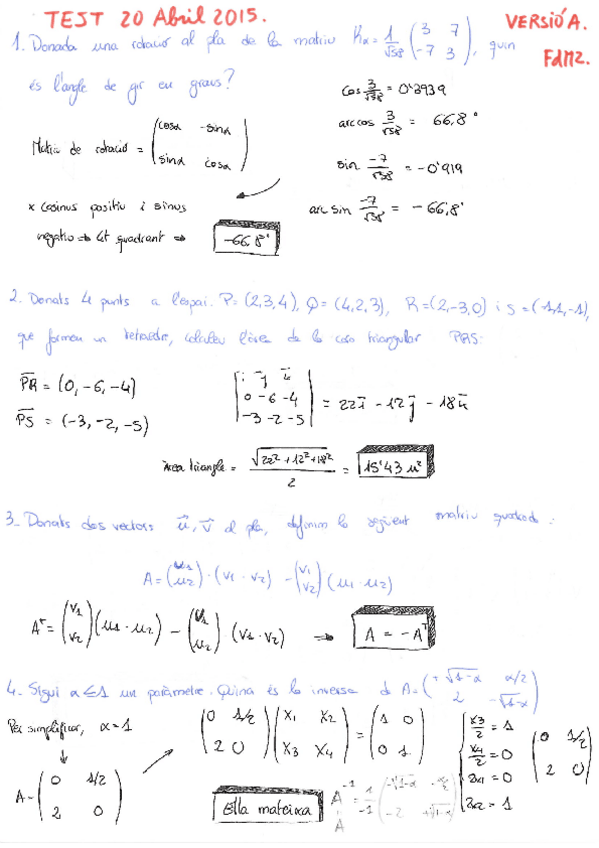 TEST 20 Abril 2015. VERSIÓ A.
FdM2.
1. Donada una rotació al pla de la matriu Rα = 1/√58 (3 7 / -7 3), quin
és l'angle de gir en graus?
cos 3/√58 = 0'3939
arccos 3/√58 = 66,8°
Matriu de rotació = (cosα -sinα / sinα cosα)
sin -7/√58 = -0'919
arc sin -7/√58 = -66,8°
x cosinus positiu i sinus
negatiu → 4t quadrant → -66.8°
2. Donats 4 punts a l'espai. P=(2,3,4), Q=(4,2,3), R=(2,-3,0) i S=(-1,1,-1),
que formen un tetraedre, calculeu l'àrea de la cara triangular PRS:
PR = (0,-6,-4)
PS = (-3,-2,-5)
|i j k / 0 -6 -4 / -3 -2 -5| = 22i - 12j - 18k
Àrea triangle = √22²+12²+18² / 2 = 15'43 u²
3. Donats dos vectors u, v al pla, definim la següent matriu quadrada:
A = (u1 / u2) · (v1 · v2) - (v1 / v2) (u1 · u2)
Aᵀ = (v1 / v2) (u1 · u2) - (u1 / u2) · (v1 · v2) → A = -Aᵀ
4. Sigui α ≤ 1 un paràmetre. Quina és la inversa d A = (+√1-α α/2 / 2 -√1-α)
Per simplificar, α=1
(0 1/2 / 2 0) (x1 x2 / x3 x4) = (1 0 / 0 1)
x3/2 = 1
x4/2 = 0
2x1 = 0
2x2 = 1
(0 1/2 / 2 0)
A = (0 1/2 / 2 0)
Ella mateixa
A⁻¹ = 1/-1 (-√1-α -α/2 / -2 +√1-α)
A